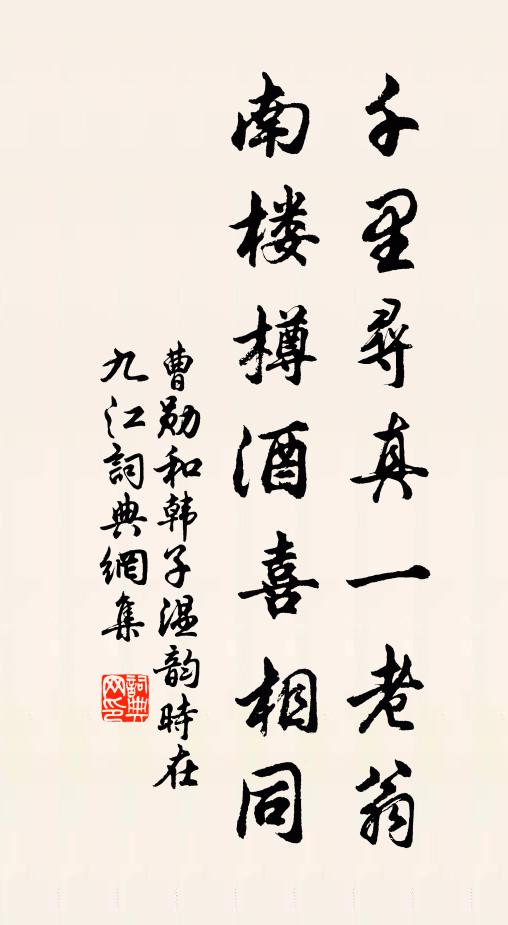 千里尋真一老翁
南楼樽酒喜相同
曹勋和韩子温韵時在
九江詞典網集
詞典网印